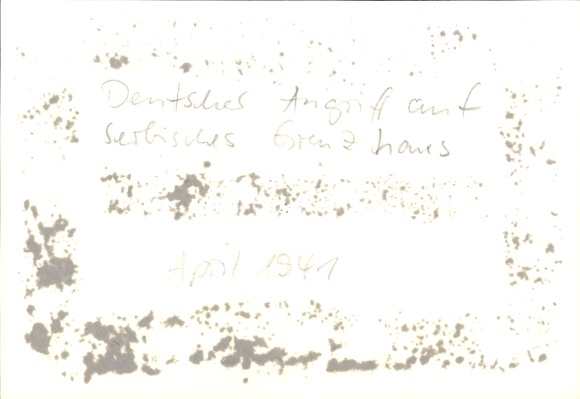 Deutscher Angriff auf
serbisches Grenzhaus
April 1941